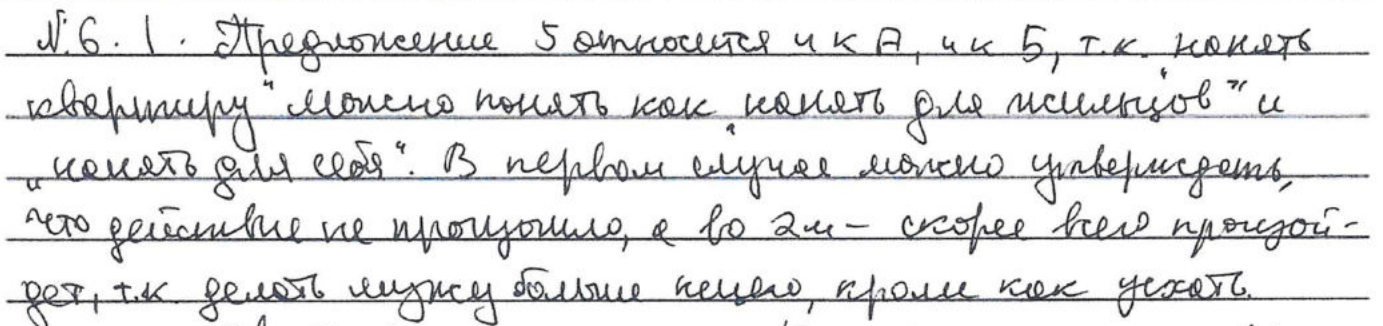 №6.1. Предложение 5 относится и к А, и к Б, т.к. нанять
квартиру" можно понять как "нанять для жильцов" и
"нанять для себя". В первом случае можно утверждать,
что действие не произошло, а во 2м – скорее всего произой-
дет, т.к. делать мужу больше нечего, кроме как уехать.